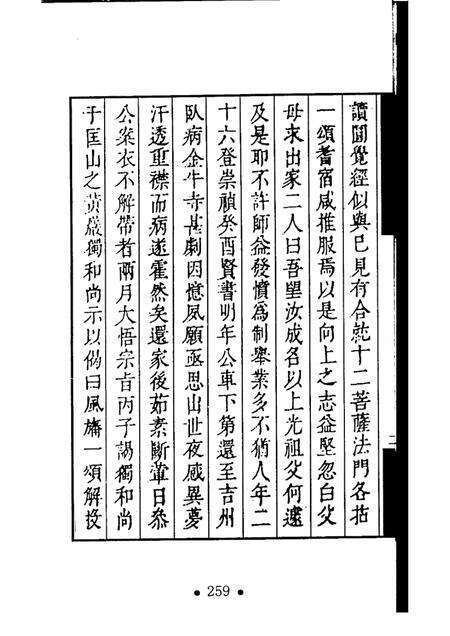 讀圓覺經似與己見有合就十二菩薩法門各拈
一頌耆宿咸推服焉以是向上之志益堅忽白父
母求出家二人曰吾望汝成名以上光祖父何遽
及是耶不許師益發憤為制舉業多不猶人年二
十六登崇禎癸酉賢書明年公車下第還至吉州
臥病金牛寺甚劇因憶夙願亟思出世夜感異夢
汗透重襟而病遂霍然矣還家後茹素斷葷日參
公案衣不解帶者兩月大悟宗旨丙子謁獨和尚
于匡山之黃巖獨和尚示以偈曰風旛一頌解投
二
• 259 •